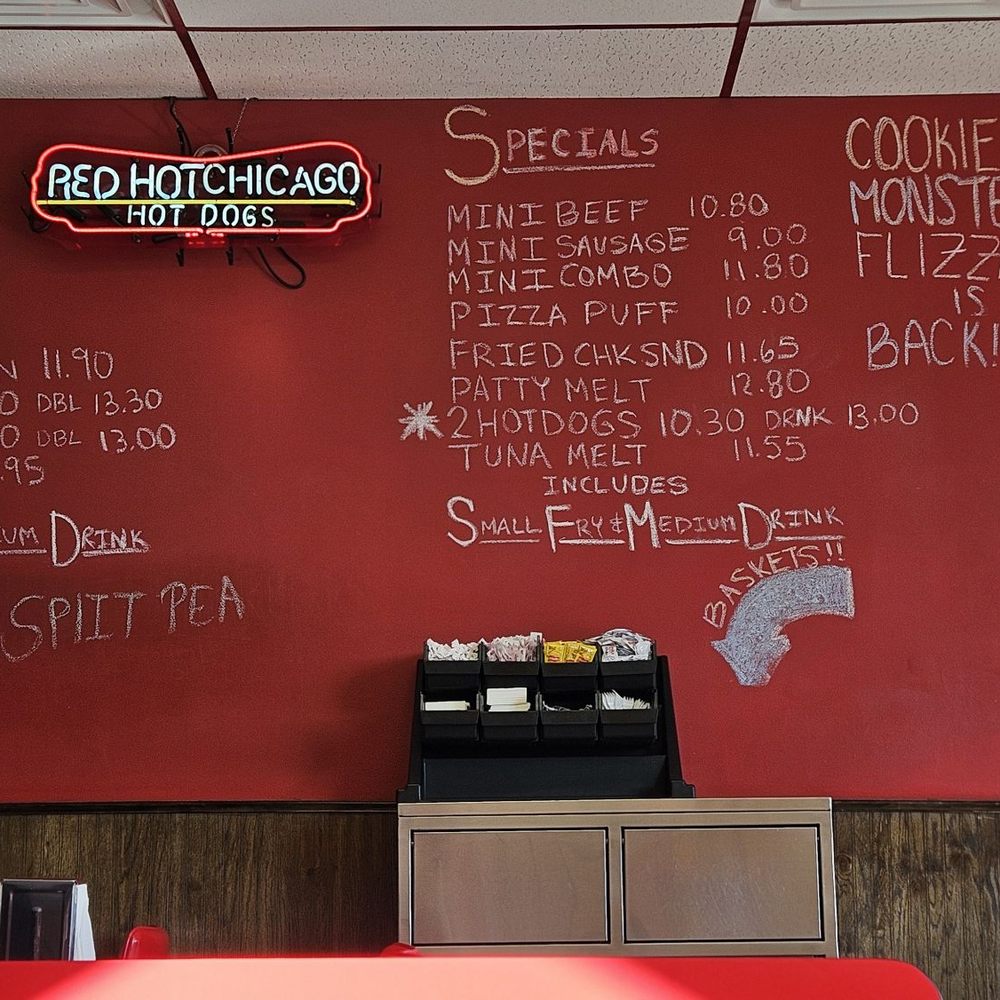 RED HOT CHICAGO
HOT DOGS
11.90
DBL 13.30
DBL 13.00
.95
DRINK
SPLIT PEA
SPECIALS
MINI BEEF 10.80
MINI SAUSAGE 9.00
MINI COMBO 11.80
PIZZA PUFF 10.00
FRIED CHK SND 11.65
PATTY MELT 12.80
2 HOTDOGS 10.30 DRNK 13.00
TUNA MELT 11.55
INCLUDES
SMALL FRY & MEDIUM DRINK
BASKETS!!
COOKIE
MONST
FLIZZ
IS
BACK!